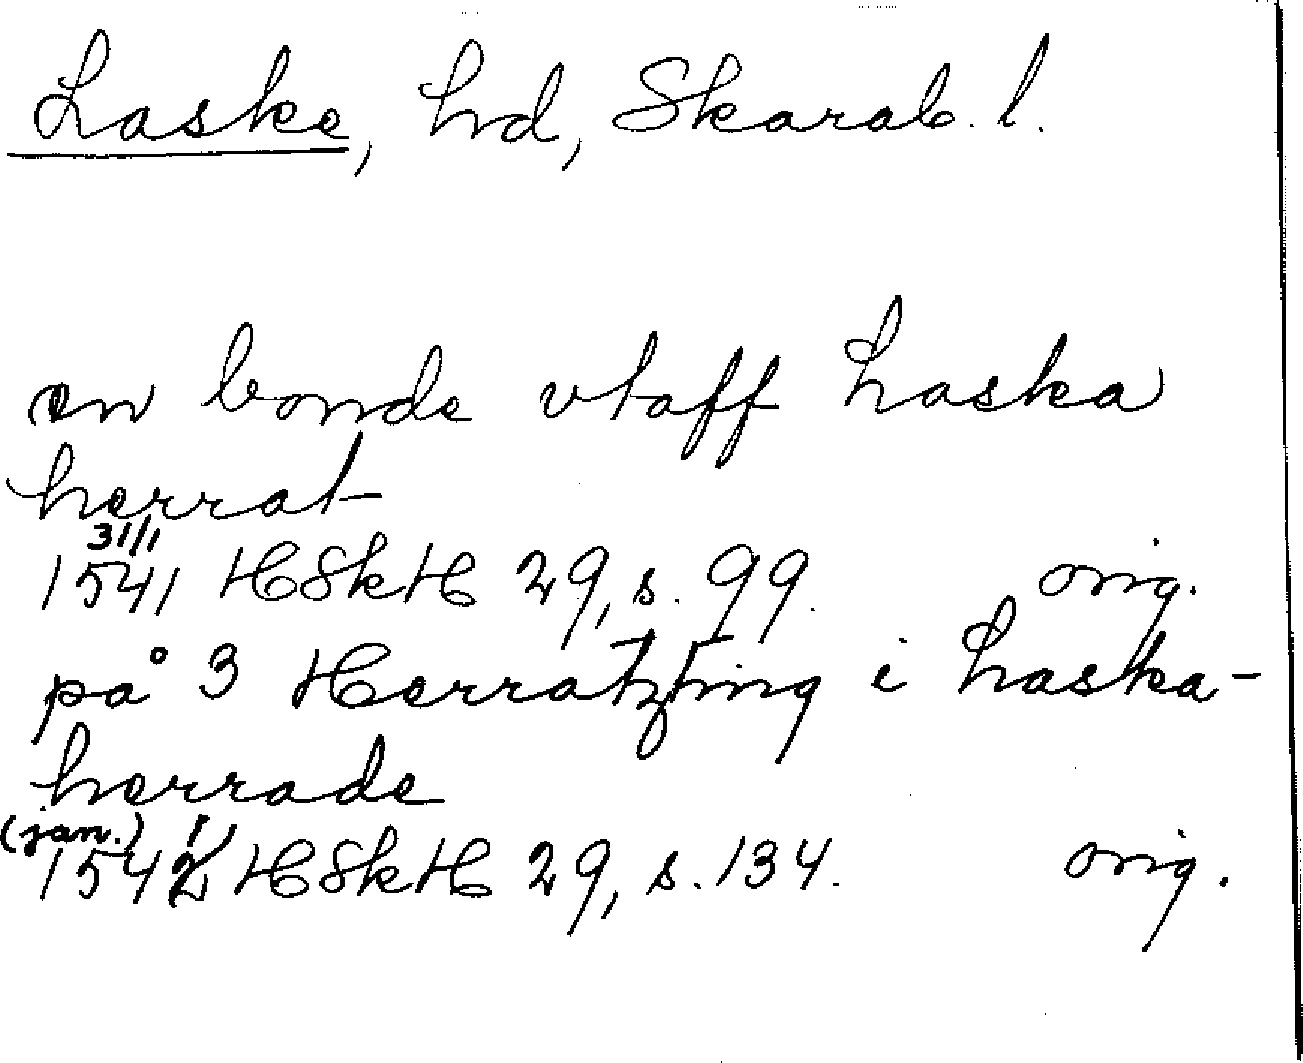 Laske, hd, Skarab. l.
en bonde vtaff Laska
herrat
31/1
1541 HSkH 29, s. 99. orig.
på 3 Herratzting i Laska-
herrade
(jan.)
1542 HSkH 29, s. 134. orig.